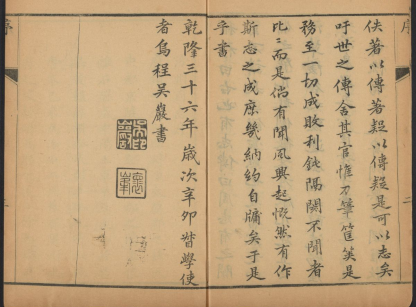 序
佚著以傳著疑以傳疑是可以志矣
吁世之傳舍其官惟刀筆筐篋是
務至一切成敗利鈍隔閡不聞者
比比而是倘有聞風興起慨然有作
斯志之成庶幾納約自牖矣于是
乎書
乾隆三十六年歲次辛卯督學使
者烏程吳巖書
序